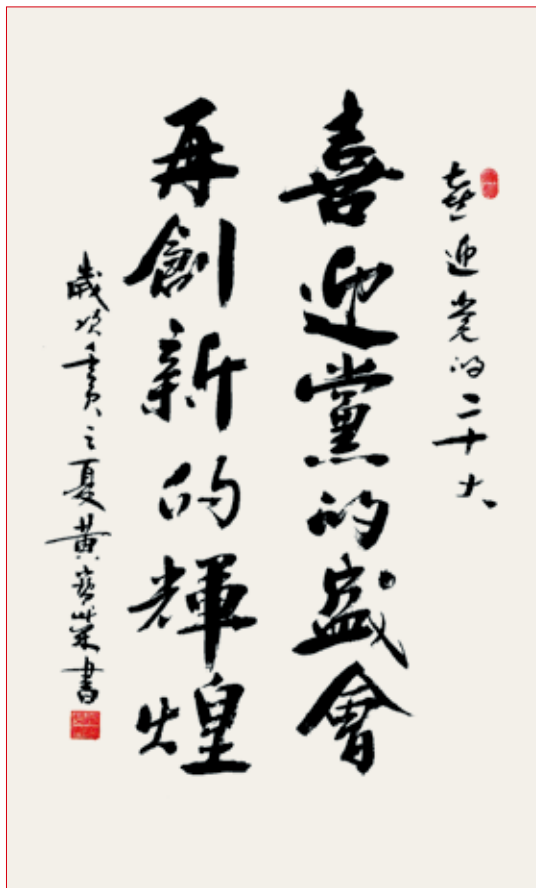 喜迎党的二十大
喜迎黨的盛會
再創新的輝煌
歲次壬寅之夏黃寶榮書